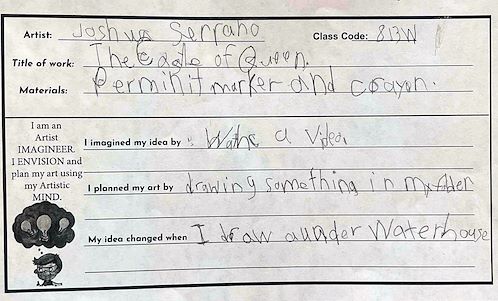 Artist: Joshua Serrano Class Code: 813W
Title of work: The Eagle of Queen.
Materials: Perminit marker and crayon.
I am an
Artist
IMAGINEER.
I ENVISION and
plan my art using
my Artistic
MIND.
I imagined my idea by : Wathc a Video,
I planned my art by drawing something in
My idea changed when I draw a under Waterhouse